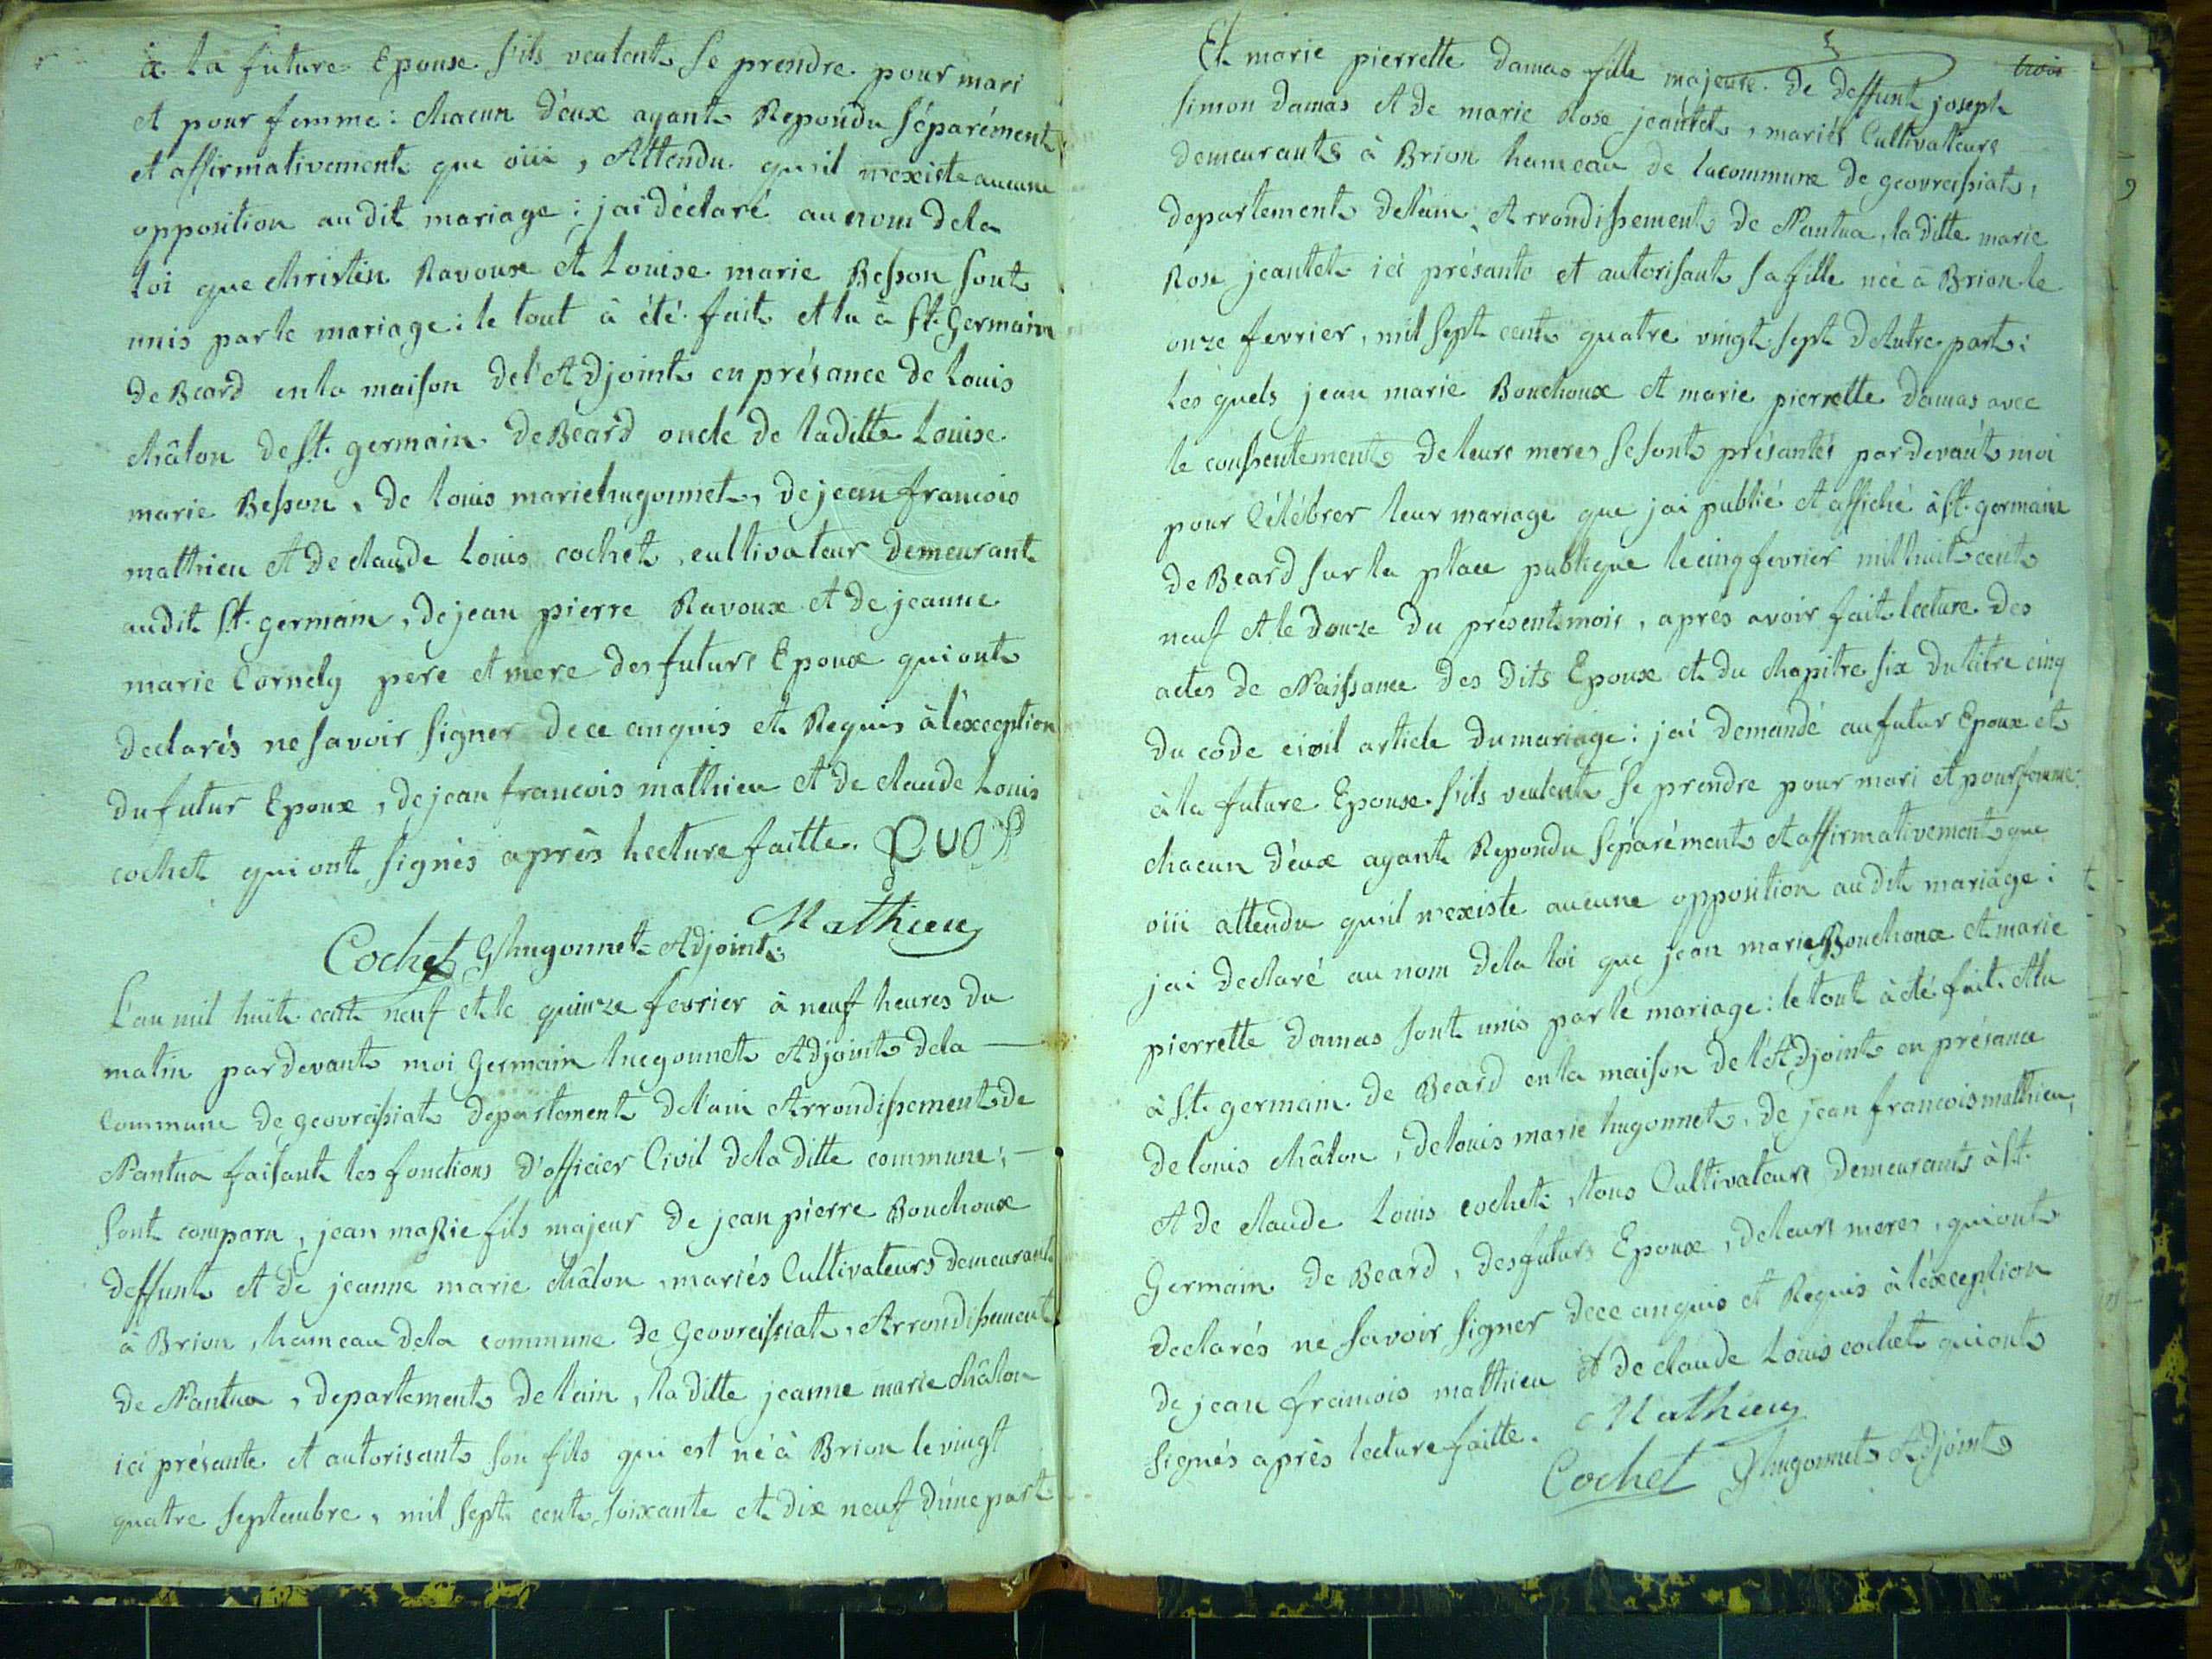 à la future Epouse s'ils veulent se prendre pour mari
et pour femme : chacun d'eux ayant Repondu séparément
et affirmativement que oiii, Attendu qu'il n'existe aucune
opposition audit mariage ; jai déclaré au nom dela
loi que christin Ravoux et Louise marie Besson sont
unis par le mariage : le tout à été fait et lu à St. Germain
de Beard en la maison de l'Adjoint en présance de Louis
châlon de St. germain de Beard oncle de laditte Louise
marie Besson, de louis marie hugonnet, de jean francois
mathieu et de claude Louis cochet cultivateur demeurant
audit St. germain, de jean pierre Ravoux et de jeanne
marie Cornely pere et mere des futurs Epoux qui ont
declarés ne savoir signer de ce anquis et Requis à l'exception
du futur Epoux, de jean francois mathieu et de claude Louis
cochet qui ont signés après lecture faitte.
Mathieu
Cochet Ghugonnet Adjoint
L'an mil huit cent neuf et le quinze fevrier à neuf heures du
matin par devant moi Germain hugonnet Adjoint dela
Commune de geovreissiat departement del'ain Arrondissement de
Nantua faisant les fonctions d'officier Civil dela ditte commune,
sont comparu, jean marie fils majeur de jean pierre Bouchoux
deffunt et de jeanne marie châlon, mariés Cultivateurs demeurants
à Brion, hameau dela commune de Geovreissiat, Arrondissement
de Nantua, departement de lain, la ditte jeanne marie châlon
ici présante et autorisant son fils qui est né à Brion le vingt
quatre septembre, mil sept cent soixante et dix neuf d'une part
trois
Et marie pierrette damas fille majeure de deffunt joseph
simon damas et de marie Rose jeantet, mariés Cultivateurs
demeurants à Brion hameau de la commune de geovreissiat,
departement delain, Arrondissement de Nantua, la ditte marie
Rose jeantet ici présante et autorisant sa fille née à Brion le
onze fevrier, mil sept cent quatre vingt sept delutre part :
Les quels jean marie Bouchoux et marie pierrette damas avec
le consentement de leurs meres se sont présantés pardevant moi
pour Célébrer leur mariage que jai publié et affiché à St. germain
de Beard sur la place publique le cinq fevrier mil huit cent
neuf et le douze du présent mois, après avoir fait lecture des
actes de Naissance des dits Epoux et du chapitre six du titre cinq
du code civil article du mariage : jai demandé au futur Epoux et
à la future Epouse s'ils veulent se prendre pour mari et pour femme :
chacun d'eux ayant Repondu séparément et affirmativement que
oiii attendu qu'il n'existe aucune opposition audit mariage :
jai declaré au nom dela loi que jean marie Bouchoux et marie
pierrette damas sont unis par le mariage : le tout à été fait et lu
à St. germain de Beard en la maison de l'Adjoint en présance
de louis châlon, de louis marie hugonnet, de jean francois mathieu,
et de claude Louis cochet, tous Cultivateurs demeurants à St.
Germain de Beard, des futurs Epoux, de leurs meres, qui ont
declarés ne savoir signer de ce anquis et Requis à l'exception
de jean francois mathieu et de claude Louis cochet qui ont
signés après lecture faitte. Mathieu
Cochet Ghugonnet Adjoint